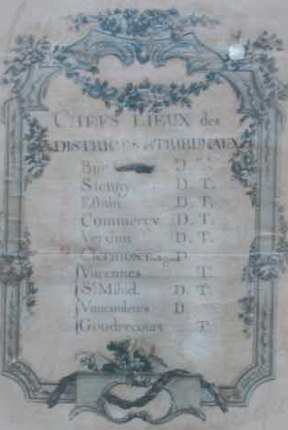 CHEFS LIEUX des
DISTRICTS et TRIBUNAUX
Bar D. T.
Stenay D. T.
Estain D. T.
Commercy D. T.
Verdun D. T.
D
Varennes T.
St. Mihiel. D. T.
Vaucouleurs D
Goudrecourt T.